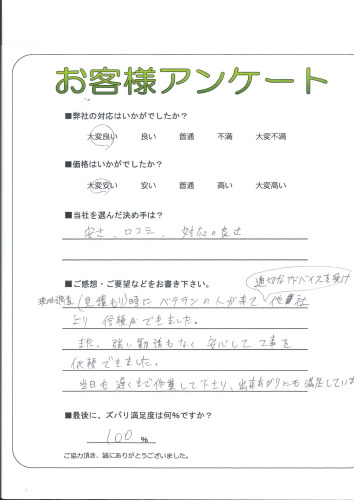 お客様アンケート
■弊社の対応はいかがでしたか?
大変良い 良い 普通 不満 大変不満
■価格はいかがでしたか?
大変安い 安い 普通 高い 大変高い
■当社を選んだ決め手は?
安さ、口コミ、対応の良さ
■ご感想・ご要望などをお書き下さい。
適切なアドバイスを受け
現地調査(見積もり)時にベテランの人が来て 他社
より信頼ができました。
また、強い勧誘もなく安心して工事を
依頼できました。
当日も遅くまで作業して下さり、出来あがりにも満足していま
■最後に、ズバリ満足度は何%ですか?
100 %
ご協力頂き、誠にありがとうございました。